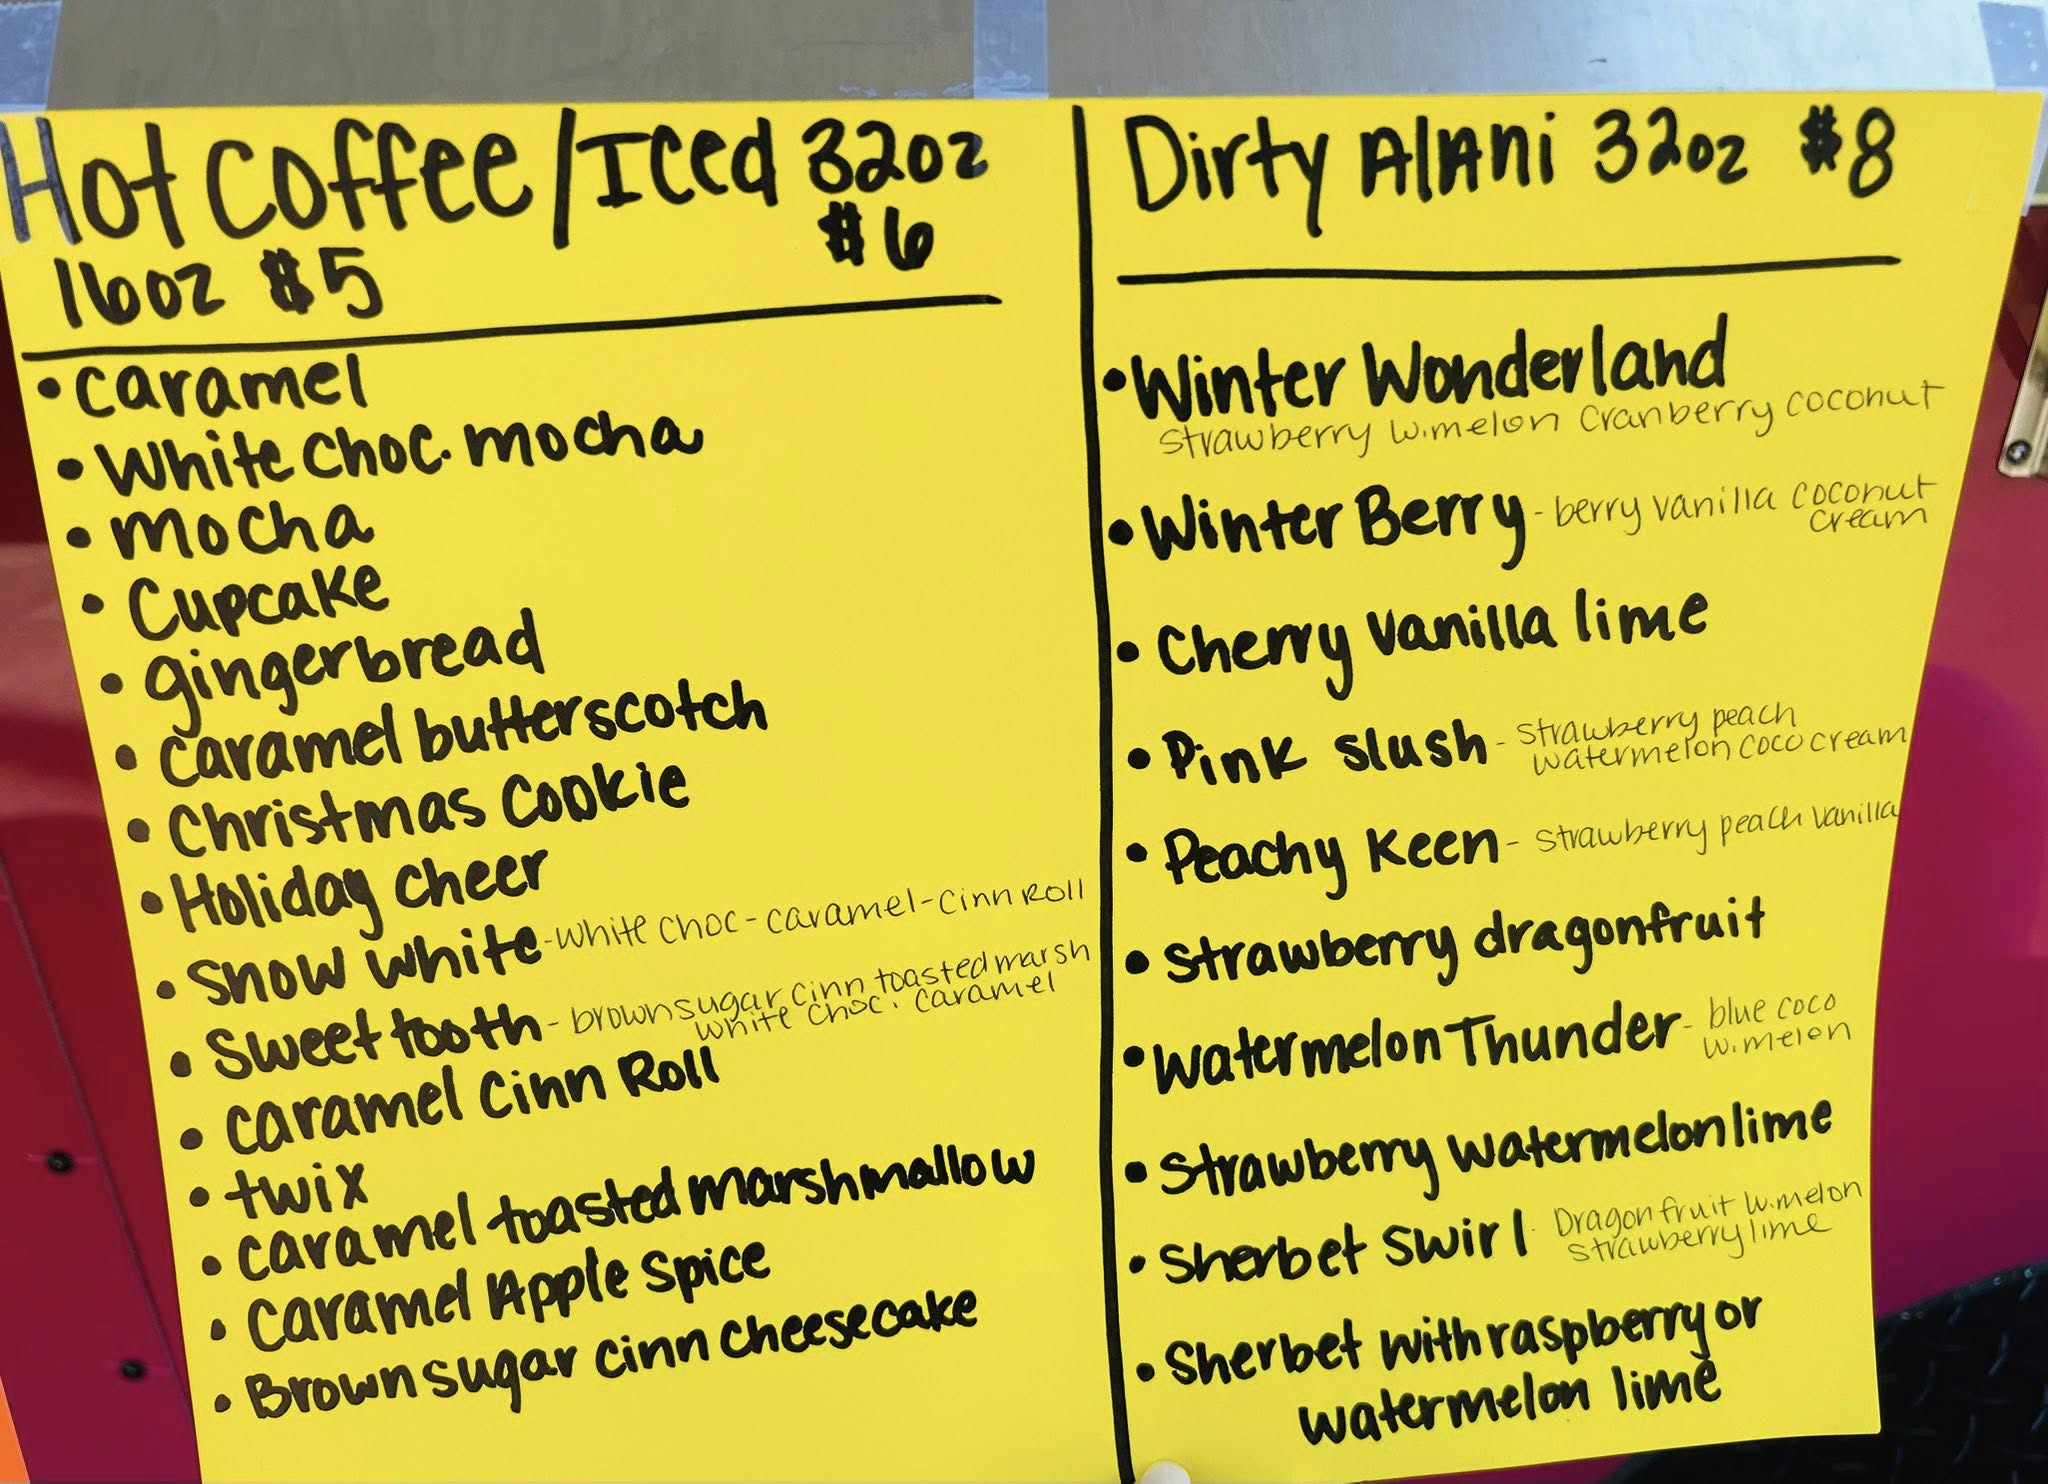 Hot Coffee/Iced 32oz
16oz $5 $6
• Caramel
• White Choc. mocha
• mocha
• Cupcake
• gingerbread
• Caramel butterscotch
• Christmas Cookie
• Holiday cheer
• Snow White -white choc-caramel-cinn Roll
• Sweet tooth - brown sugar cinn toasted marsh
white choc. caramel
• Caramel Cinn Roll
• twix
• Caramel toasted marshmallow
• Caramel Apple Spice
• Brown sugar cinn cheesecake
Dirty Alani 32oz $8
• Winter Wonderland
strawberry w.melon cranberry coconut
• Winter Berry - berry vanilla coconut
cream
• Cherry vanilla lime
• Pink Slush - strawberry peach
watermelon coco cream
• Peachy Keen - strawberry peach vanilla
• Strawberry dragonfruit
• Watermelon Thunder - blue coco
w.melon
• Strawberry watermelon lime
• Sherbet swirl - Dragonfruit w.melon
strawberry lime
• Sherbet with raspberry or
watermelon lime